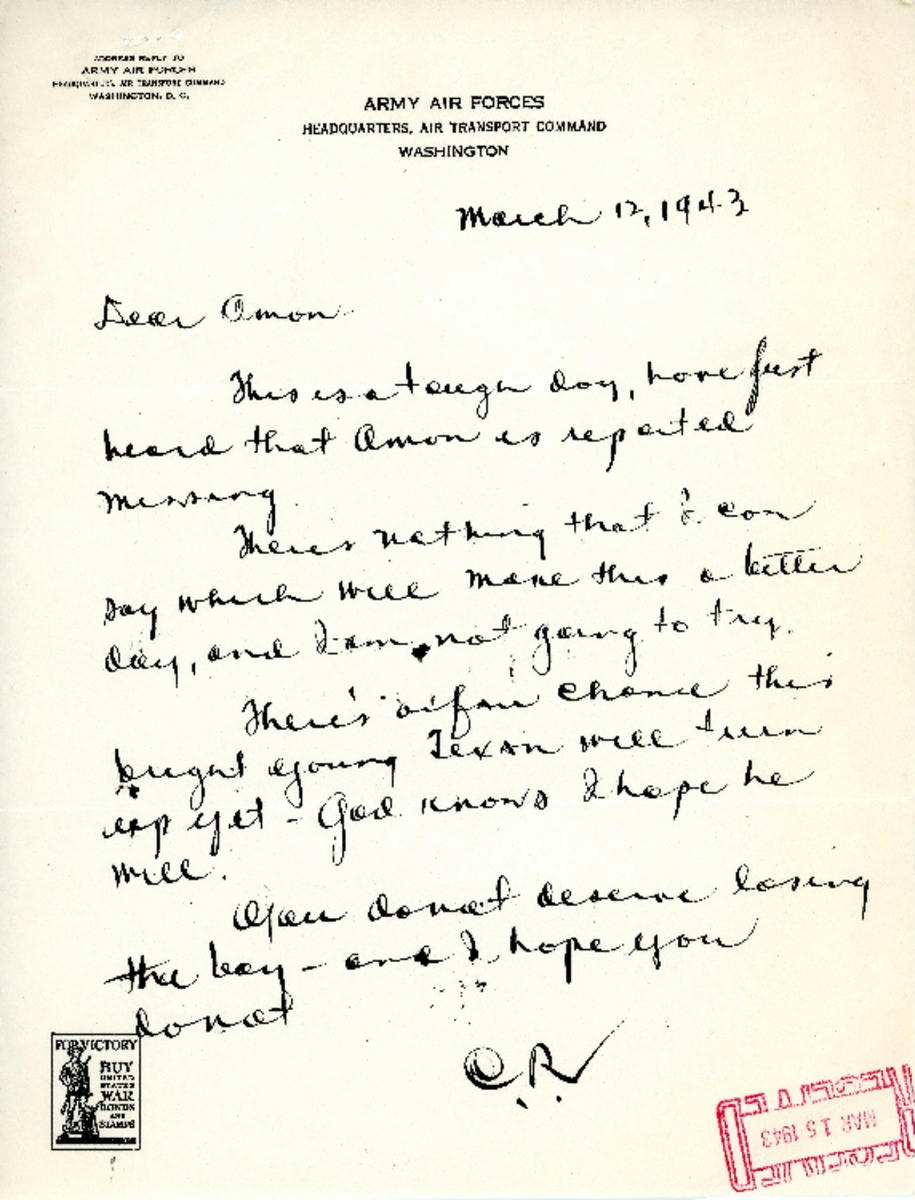 ADDRESS REPLY TO
ARMY AIR FORCES
HEADQUARTERS, AIR TRANSPORT COMMAND
WASHINGTON, D. C.
ARMY AIR FORCES
HEADQUARTERS, AIR TRANSPORT COMMAND
WASHINGTON
March 12, 1943
Dear Amon
This is a tough day, have just
heard that Amon is reported
missing.
There's nothing that I can
say which will make this a better
day, and I am not going to try.
There's a fair chance this
bright young Texan will turn
up yet - God knows I hope he
will.
You do not deserve losing
the boy - and I hope you
do not
C.R.
FOR VICTORY
BUY
UNITED
STATES
WAR
BONDS
AND
STAMPS
RECEIVED
MAR 15 1943